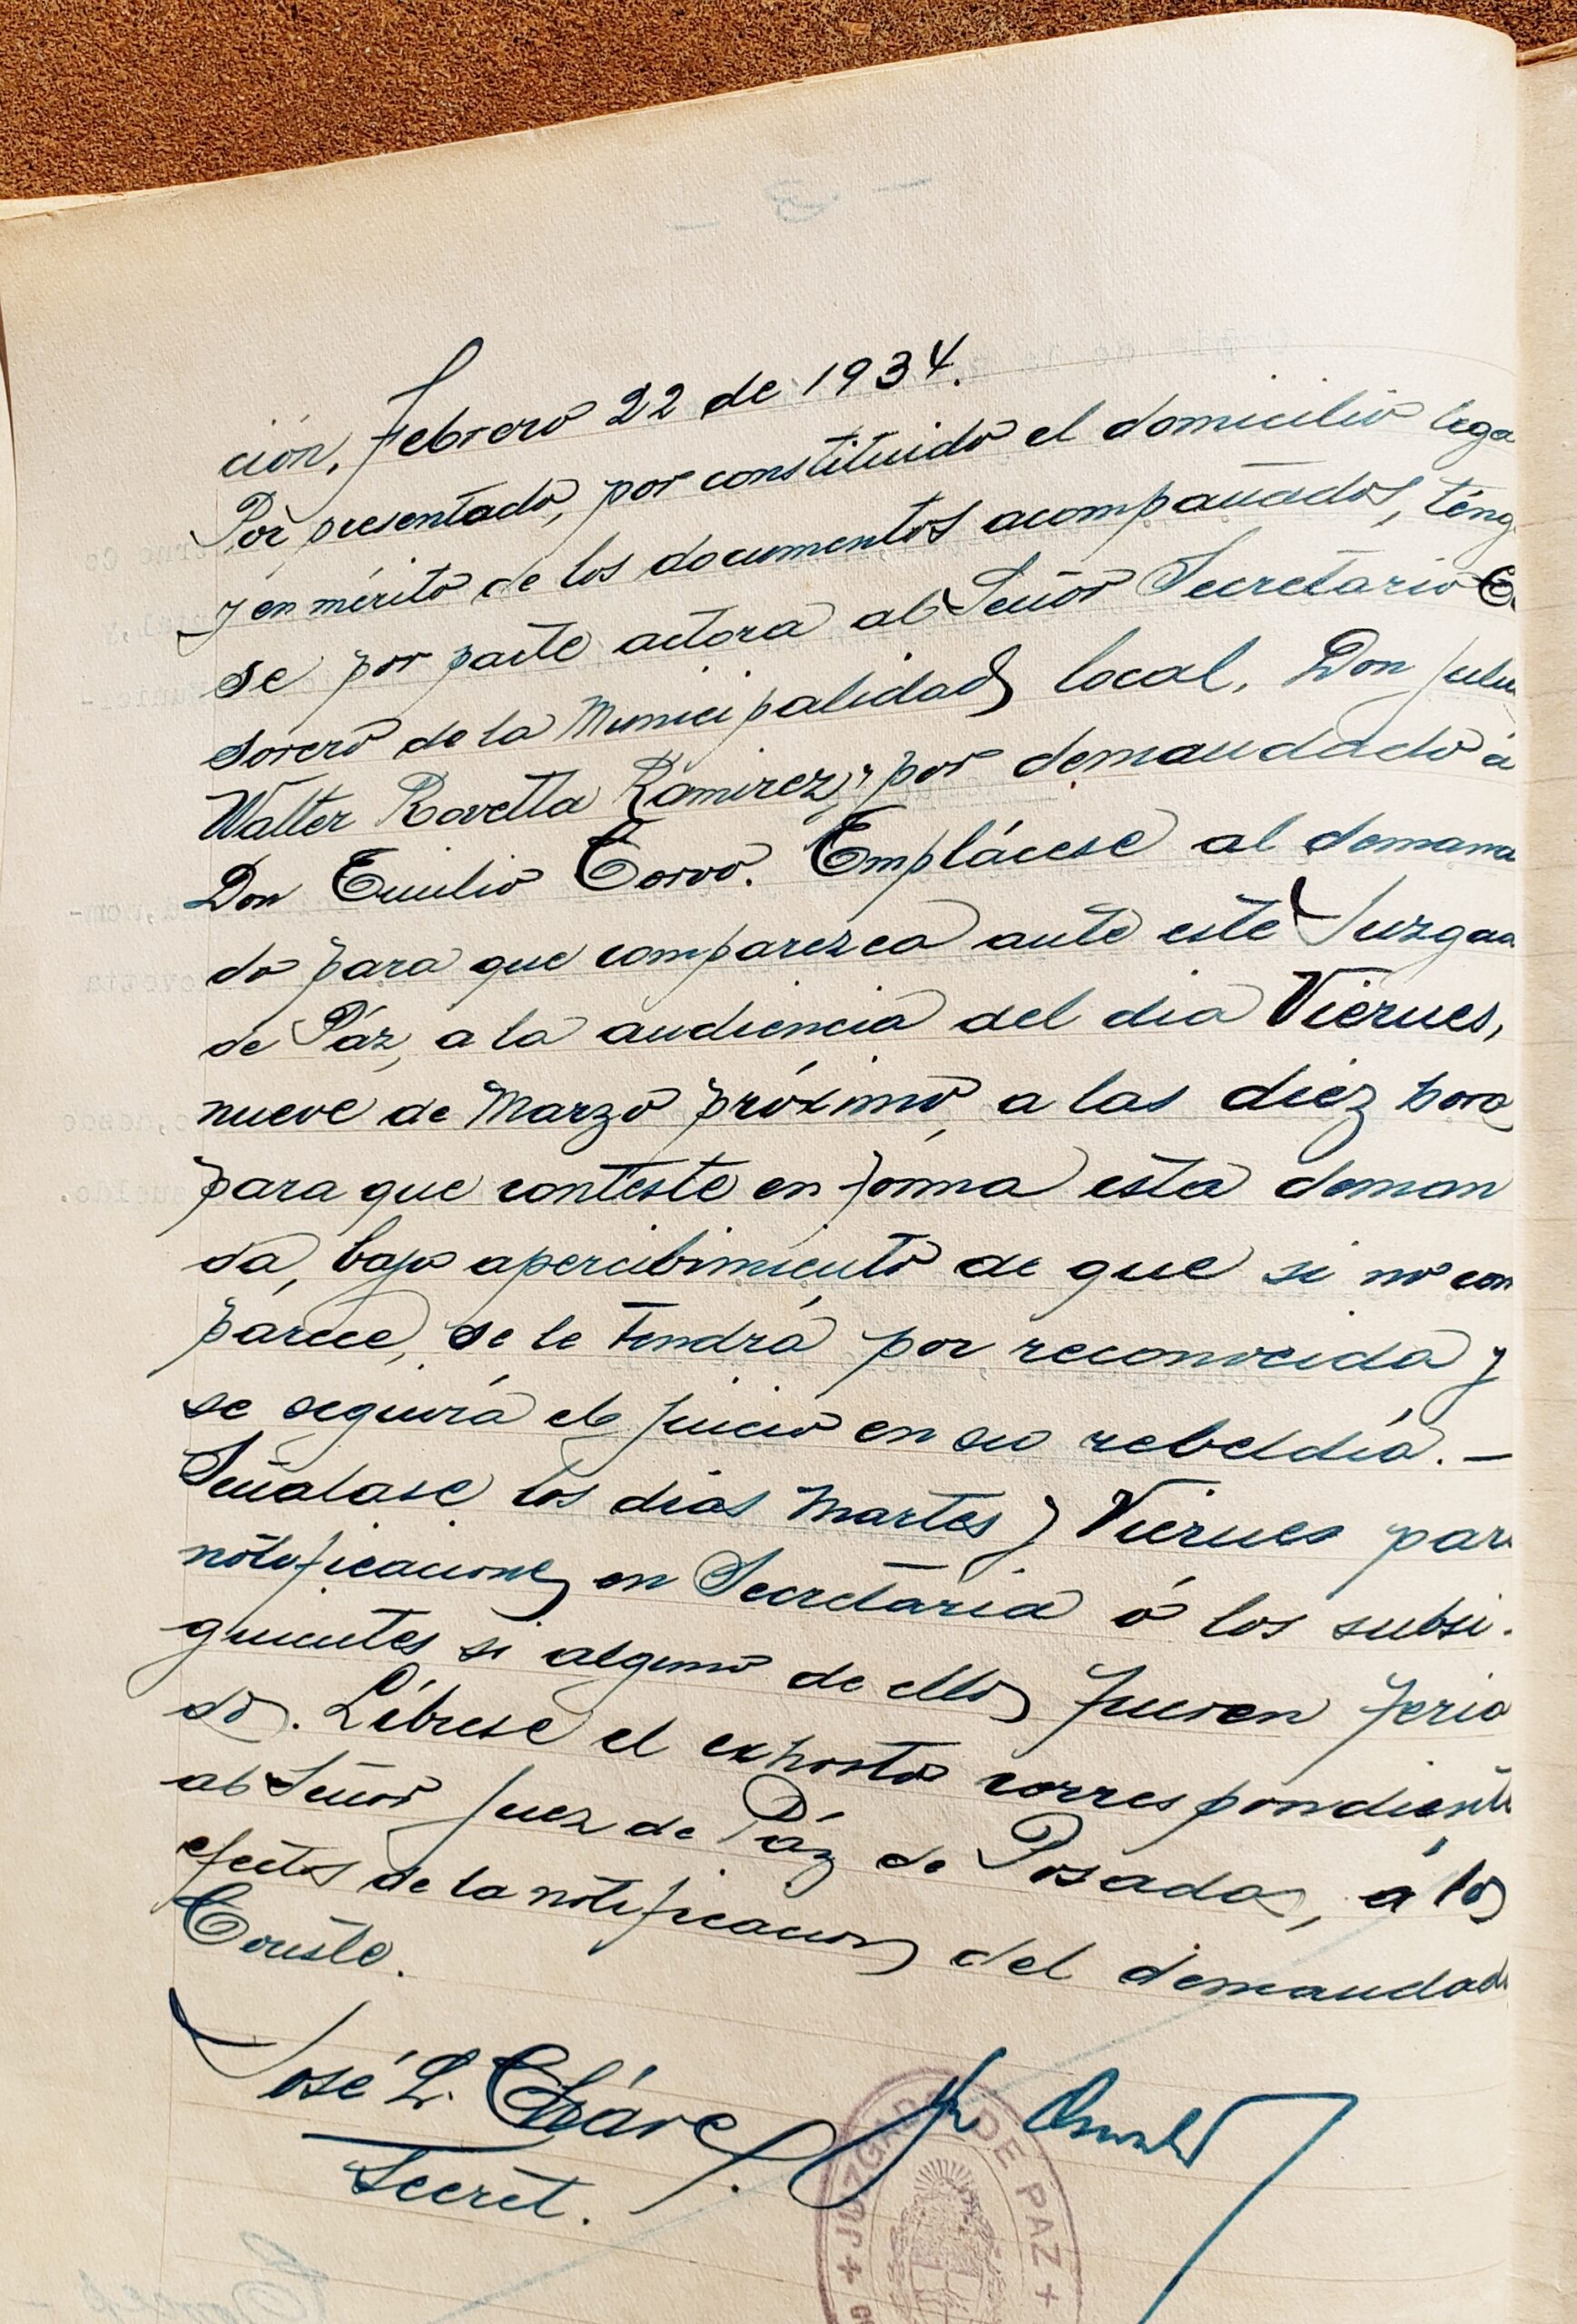 ción, Febrero 22 de 1934.
Por presentado, por constituido el domicilio lega
y en mérito de los documentos acompañados, téng
se por parte actora al Señor Secretario
sorero de la Municipalidad local, Don Juliu
Walter Rovetta Ramirez, y por demandado á
Don Emilio Corvo. Emplácese al demana
do para que comparezca ante este Juzgad
de Páz, a la audiencia del dia Viernes,
nueve de Marzo próximo, a las diéz hora
para que conteste en forma esta deman
da, bajo apercibimiento de que si no com
parece, se le tendrá por reconocida y
se seguirá el juicio en su rebeldía. -
Señalase los días Martes y Viernes par
notificaciones en Secretaria ó los subsi-
guientes si alguno de ellos fueren feria
dos. Líbrese el exhorto correspondiente
al Señor Juez de Páz de Posadas, á los
efectos de la notificacion del demandad
Conste.
José L. Cháve
Secret.
JUZGADO DE PAZ